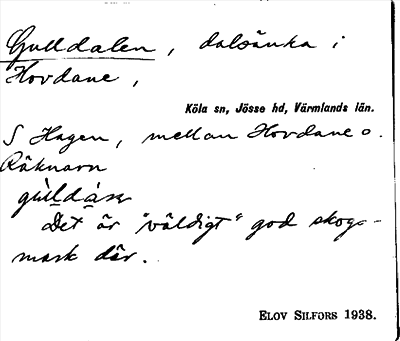 Gulldalen, dalsänka i
Hovdane,
Köla sn, Jösse hd, Värmlands län.
S Hagen, mellan Hovdane o.
Räknarn
Det är "väldigt" god skogs-
mark där.
ELOV SILFORS 1938.